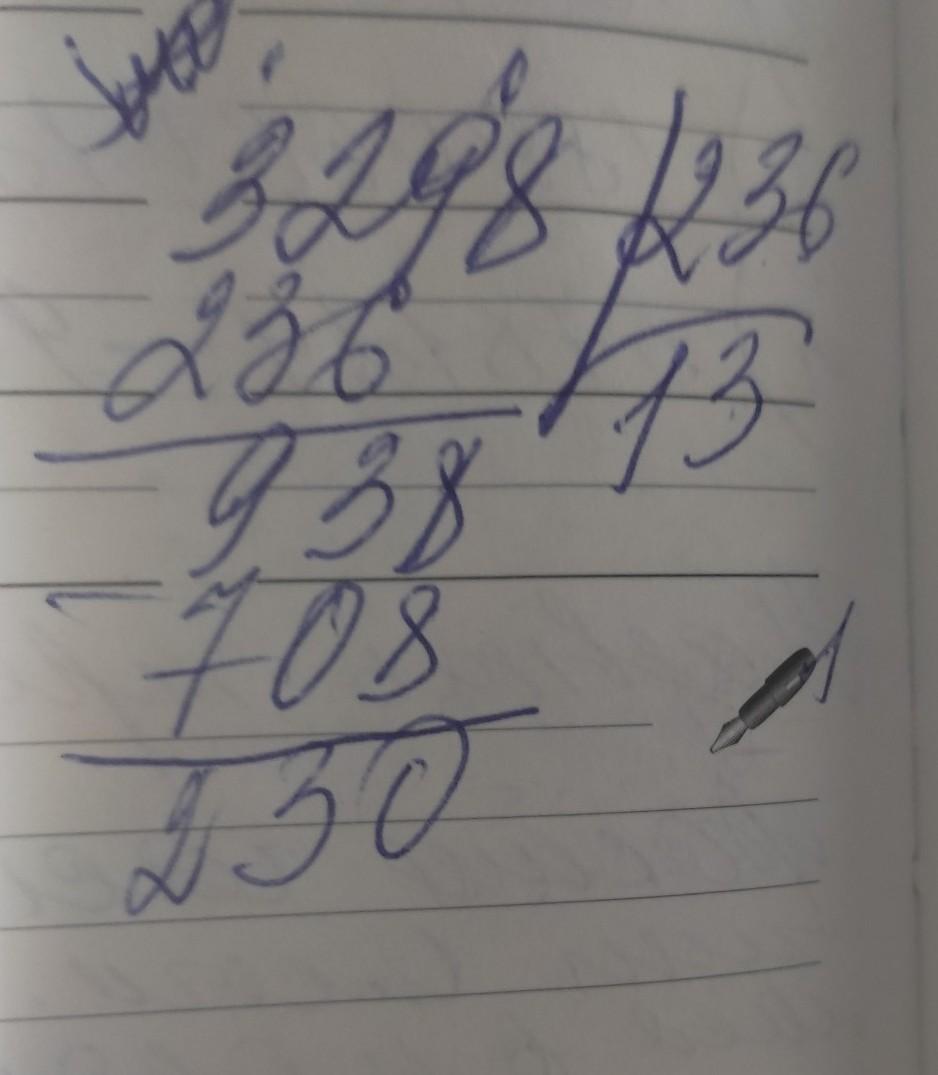 3298 236
236 13
938
- 708
230